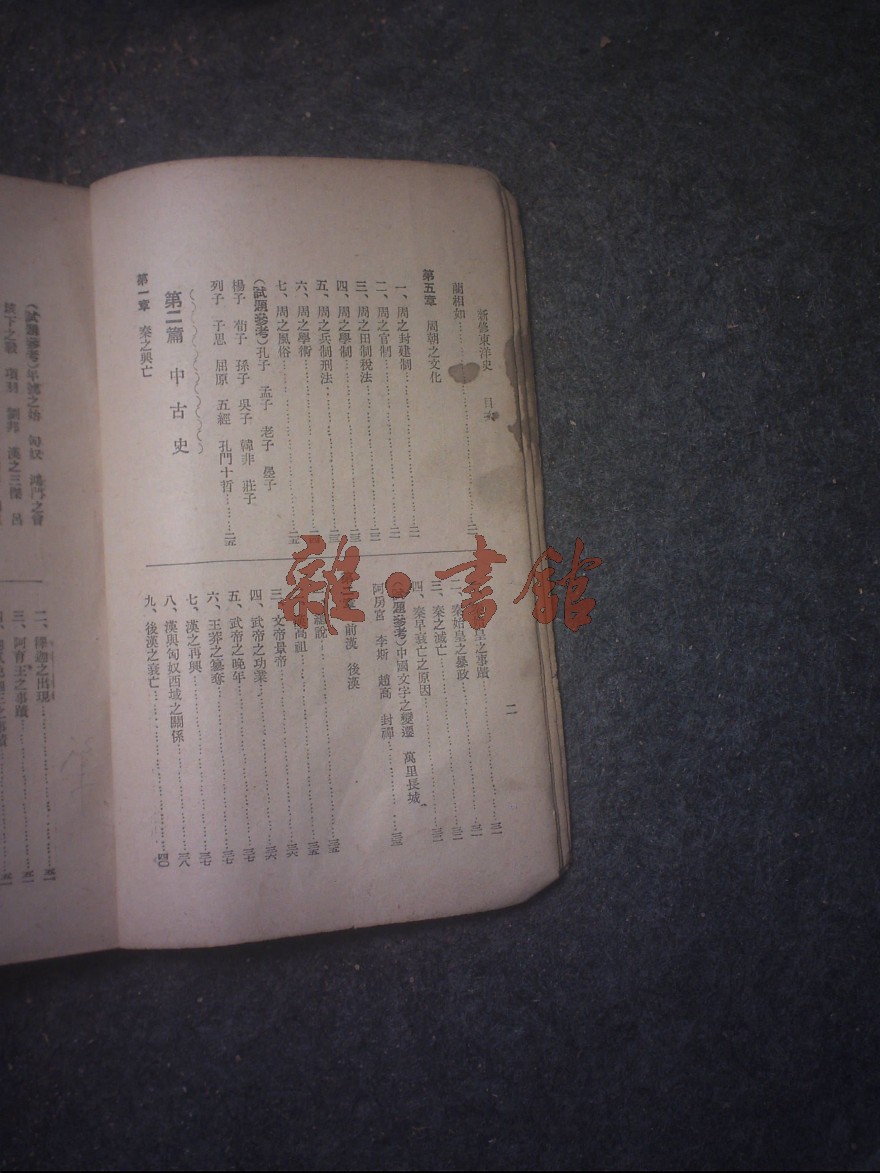 新修東洋史 目次
二
藺相如……二一
第五章 周朝之文化
一、周之封建制……二一
二、周之官制……二二
三、周之田制稅法……二三
四、周之學制……二三
五、周之兵制刑法……二三
六、周之學術……二四
七、周之風俗……二五
(試題參考)孔子 孟子 老子 墨子
楊子 荀子 孫子 吳子 韓非 莊子
列子 子思 屈原 五經 孔門十哲……二五
第二篇 中古史
第一章 秦之興亡
皇之事蹟……三一
二、秦始皇之暴政……三一
三、秦之滅亡……三二
四、秦早衰亡之原因……三二
(試題參考)中國文字之變遷 萬里長城
阿房宮 李斯 趙高 封禪……三三
前漢 後漢
總說……三五
高祖……三五
三、文帝景帝……三六
四、武帝之功業……三六
五、武帝之晚年……三七
六、王莽之篡奪……三七
七、漢之再興……三七
八、漢與匈奴西域之關係……三八
九、後漢之衰亡……四〇
(試題參考)年號之始 匈奴 鴻門之會
垓下之戰 項羽 劉邦 漢之三傑 呂
二、釋迦之出現……五一
三、阿育王之事蹟……五一
雜·書館